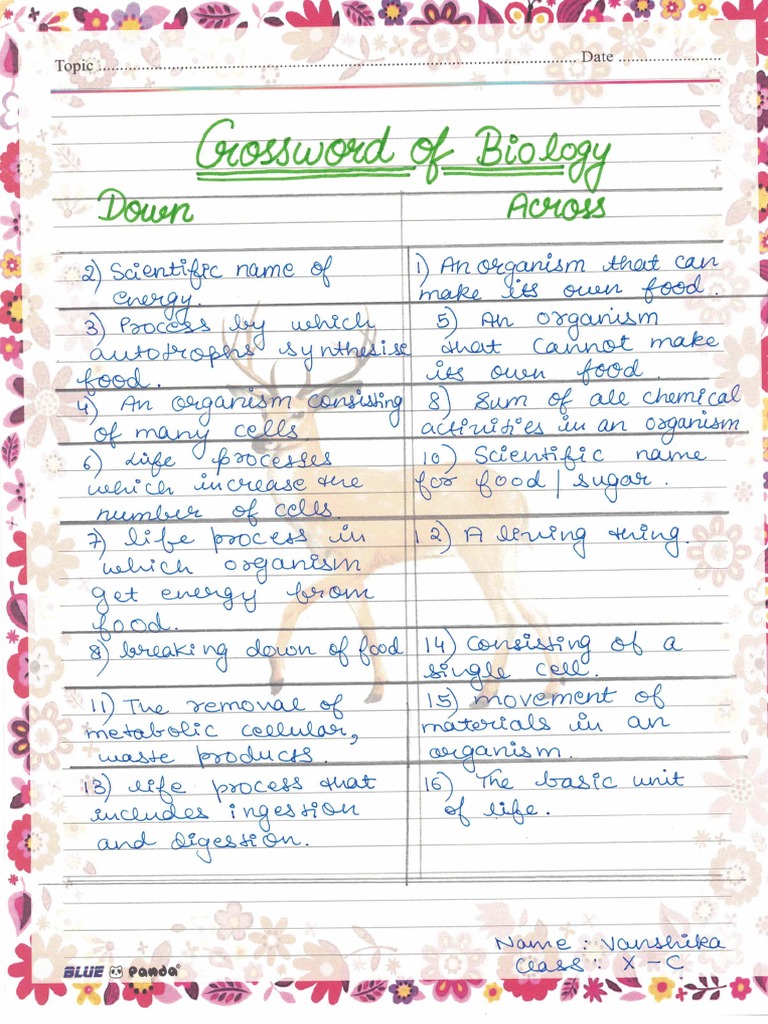 Topic ................ Date ................
Crossword of Biology
Down
2) Scientific name of
energy.
3) Process by which
autotrophs synthesise
food.
4) An organism consisting
of many cells.
6) Life processes
which increase the
number of cells.
7) life process in
which organism
get energy from
food.
8) breaking down of food
11) The removal of
metabolic cellular,
waste products.
13) life process that
includes ingestion
and digestion.
Across
1) An organism that can
make its own food.
5) An organism
that cannot make
its own food.
8) Sum of all chemical
activities in an organism
10) Scientific name
for food / sugar.
12) A living thing.
14) Consisting of a
single cell.
15) movement of
materials in an
organism.
16) The basic unit
of life.
Name : Vanshika
Class : X - C
BLUE Panda